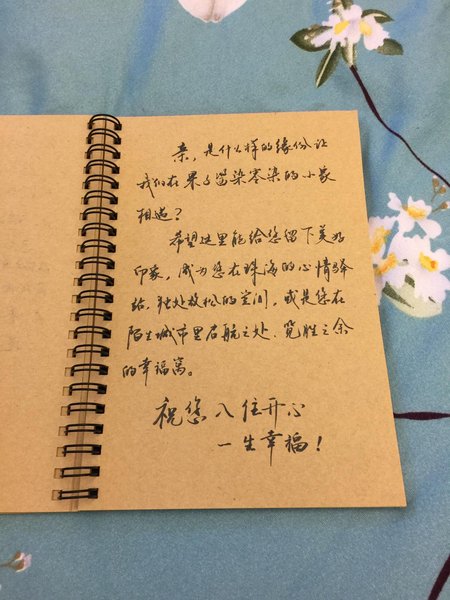 亲，是什么样的缘份让
我们在果子柒零柒的小家
相遇？
希望这里能给您留下美好
印象，成为您在珠海的心情驿
站，独处放松的空间，或是您在
陌生城市里启航之处、览胜之余
的幸福窝。
祝您入住开心
一生幸福！